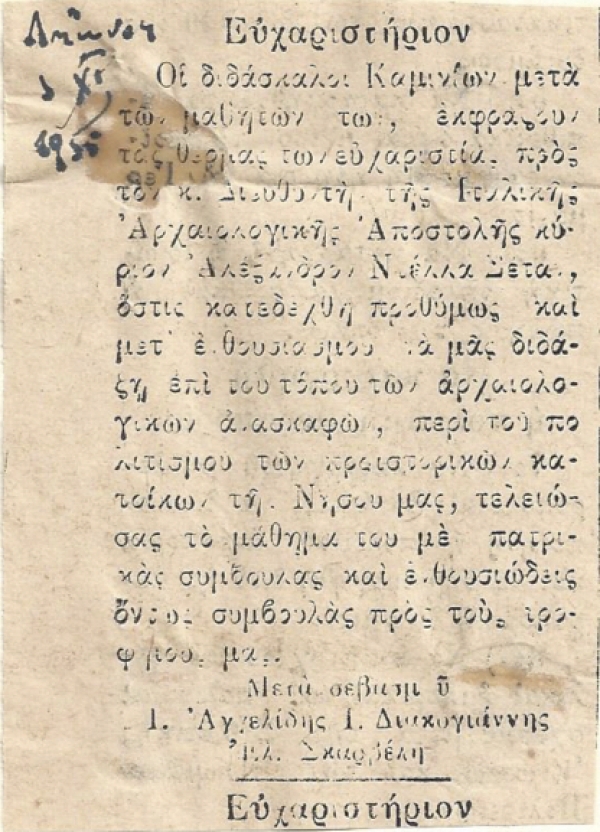 Λῆμνος
Εὐχαριστήριον
Οἱ διδάσκαλοι Καμινίων μετὰ
τῶν μαθητῶν των, ἐκφράζουν
τὰς θερμὰς των εὐχαριστίας πρὸς
τὸν κ. Διευθυντὴν τῆς Ἰταλικῆς
Ἀρχαιολογικῆς Ἀποστολῆς κύ-
ριον Ἀλέξανδρον Ντέλλα Σέτα,
ὅστις κατεδέχθη προθύμως καὶ
μετ' ἐνθουσιασμοῦ νὰ μᾶς διδά-
ξῃ ἐπὶ τοῦ τόπου τῶν ἀρχαιολο-
γικῶν ἀνασκαφῶν, περὶ τοῦ πο
λιτισμοῦ τῶν προϊστορικῶν κα-
τοίκων τῆς Νήσου μας, τελειώ-
σας τὸ μάθημα του μὲ πατρι-
κὰς συμβουλὰς καὶ ἐνθουσιώδεις
ὄντως συμβουλὰς πρὸς τοὺς τρο-
φίμους μας.
Μετὰ σεβασμοῦ
Ι. Ἀγγελίδης Ι. Διακογιάννης
Ἑλ. Σκαρβέλη
Εὐχαριστήριον